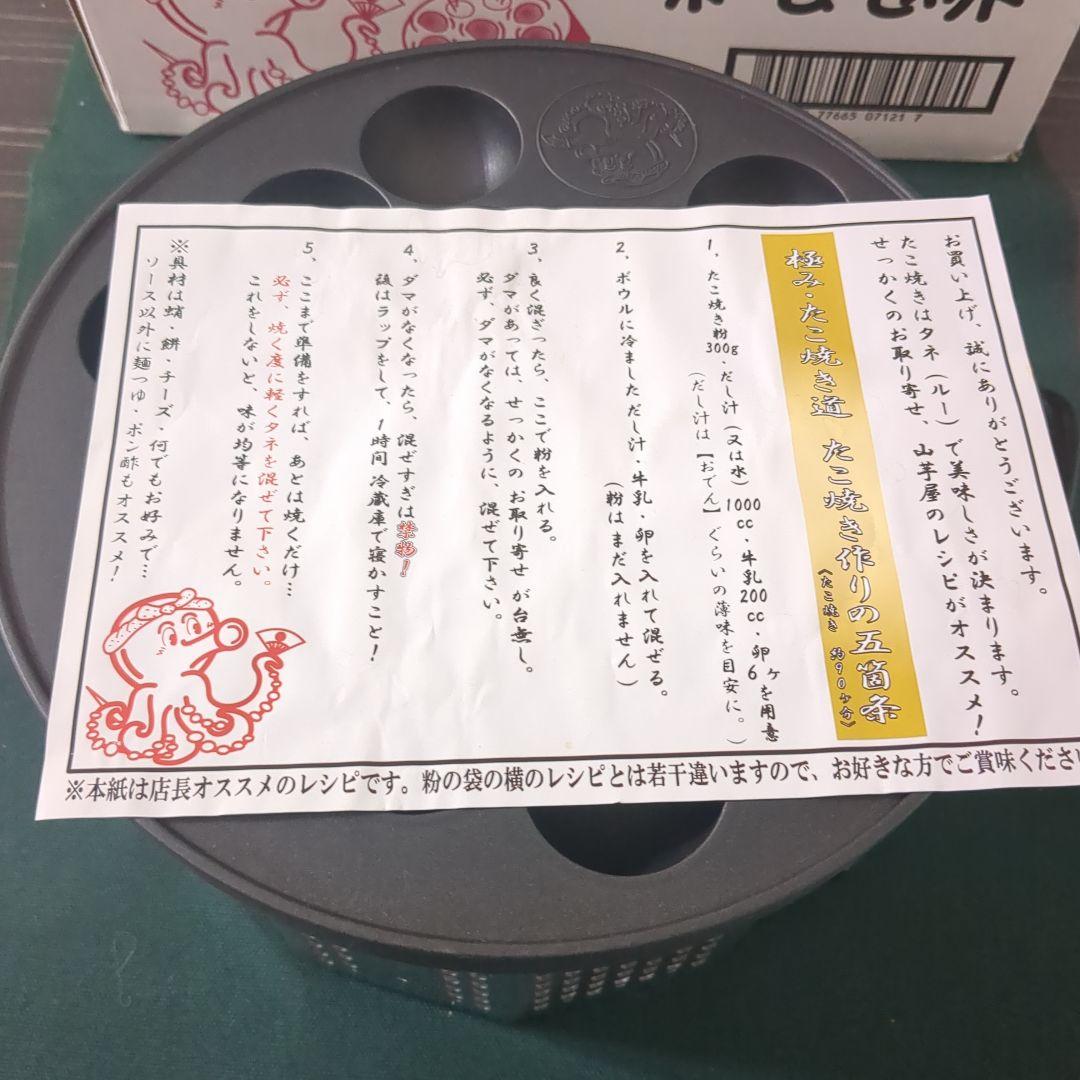 お買い上げ、誠にありがとうございます。
たこ焼きはタネ（ルー）で美味しさが決まります。
せっかくのお取り寄せ、山芋屋のレシピがオススメ！
極み・たこ焼き道 たこ焼き作りの五箇条
《たこ焼き 約90ケ分》
1、たこ焼き粉300g だし汁（又は水）1000cc・牛乳200cc・卵6ヶを用意
（だし汁は【おでん】ぐらいの薄味を目安に。）
2、ボウルに冷ましただし汁・牛乳・卵を入れて混ぜる。
（粉はまだ入れません）
3、良く混ざったら、ここで粉を入れる。
ダマがあっては、せっかくのお取り寄せが台無し。
必ず、ダマがなくなるように、混ぜて下さい。
4、ダマがなくなったら、混ぜすぎは禁物！
後はラップをして、1時間冷蔵庫で寝かすこと！
5、ここまで準備をすれば、あとは焼くだけ…
必ず、焼く度に軽くタネを混ぜて下さい。
これをしないと、味が均等になりません。
※具材は蛸・餅・チーズ・何でもお好みで…
ソース以外に麺つゆ・ポン酢もオススメ！
※本紙は店長オススメのレシピです。粉の袋の横のレシピとは若干違いますので、お好きな方でご賞味くださ
77665 07121 7